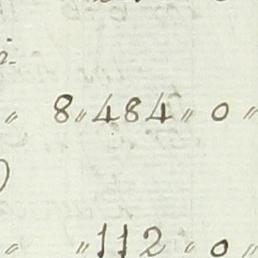 " 8 " 484 " 0 "
" " 112 " 0 "